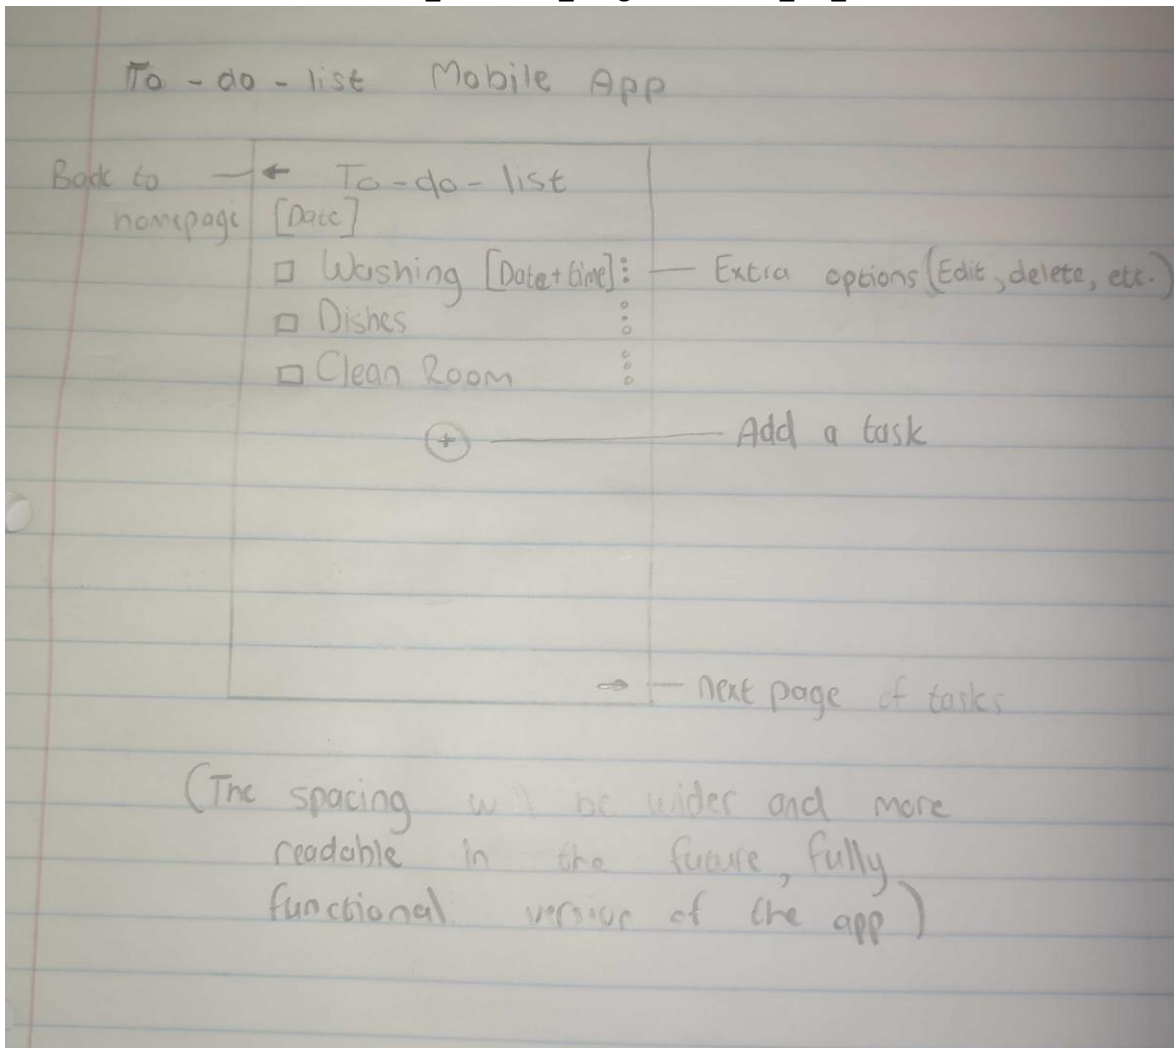 To-do-list Mobile App
Back to ← To-do-list
homepage [Date]
□ Washing [Date+time] ⋮ Extra options (Edit, delete, etc.)
□ Dishes ⋮
□ Clean Room ⋮
+ Add a task
→ next page of tasks
(The spacing will be wider and more
readable in the future, fully
functional version of the app)